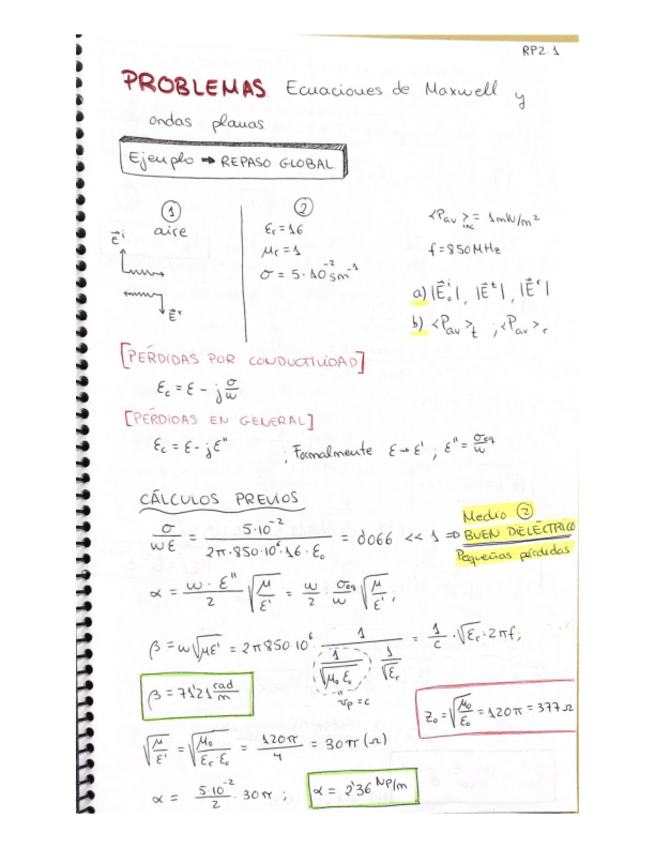 RP2.1
PROBLEMAS Ecuaciones de Maxwell y
ondas planas
Ejemplo → REPASO GLOBAL
① ②
aire
εr = 16
μr = 1
σ = 5·10⁻² Sm⁻¹
E⃗ⁱ
E⃗ʳ
<Pav>inc = 1mW/m²
f = 850 MHz
a) |E⃗₀ⁱ|, |E⃗ᵗ|, |E⃗ʳ|
b) <Pav>t ; <Pav>r
[PÉRDIDAS POR CONDUCTIVIDAD]
εc = ε - j σ/ω
[PÉRDIDAS EN GENERAL]
εc = ε - jε'' ; Formalmente ε → ε' ; ε'' = σeq/ω
CÁLCULOS PREVIOS
σ/ωε = 5·10⁻²/2π·850·10⁶·16·ε₀ = 0'066 << 1 ⇒ Medio ② BUEN DIELÉCTRICO
Pequeñas pérdidas
α = ω·ε''/2 √(μ/ε') = ω/2 · σeq/ω √(μ/ε') ;
β = ω√(με') = 2π850·10⁶ · 1/(1/√(μ₀ε₀) · 1/√εr) = 1/c · √εr · 2πf ;
vp = c
β = 71'21 rad/m
Z₀ = √(μ₀/ε₀) = 120π = 377Ω
√(μ/ε') = √(μ₀/εr·ε₀) = 120π/4 = 30π (Ω)
α = 5·10⁻²/2 · 30π ; α = 2'36 Np/m